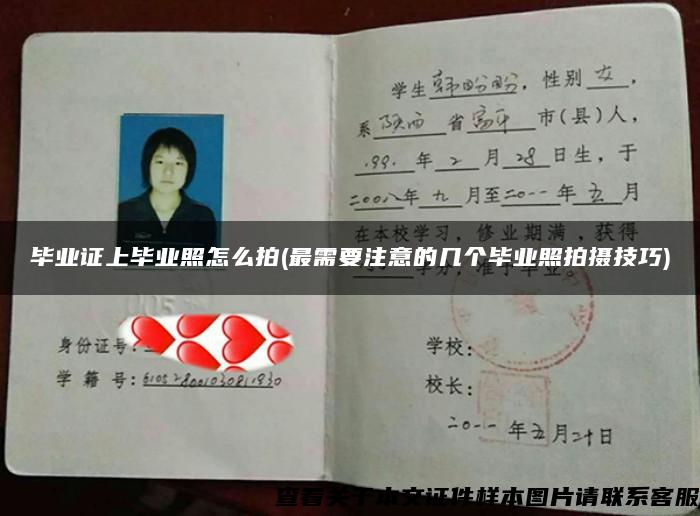 身份证号:
学 籍 号: 610528001030811930
学生韩盼盼,性别女,
系陕西省富平市(县)人,
1991年2月28日生,于
二00八年九月至二0一一年五月
在本校学习,修业期满,获得
学分,准予毕业。
毕业证上毕业照怎么拍(最需要注意的几个毕业照拍摄技巧)
学校:
校长:
二0一一年五月二十日
查看关于本文证件样本图片请联系客服